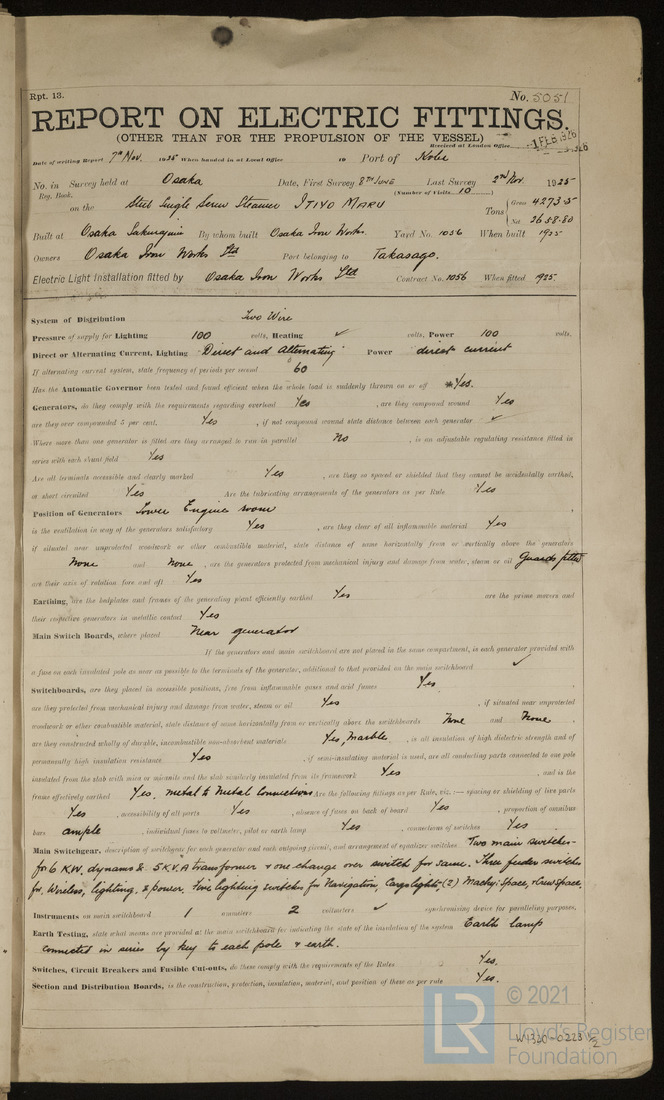 Rpt. 13.
No. 5051
REPORT ON ELECTRIC FITTINGS.
(OTHER THAN FOR THE PROPULSION OF THE VESSEL)
Received at London Office
Date of writing Report 7th Nov. 1925 When handed in at Local Office 19 Port of Kobe
No. in Survey held at Osaka Date, First Survey 8th June Last Survey 2nd Nov. 1925
Reg. Book. (Number of Visits 10)
on the Steel Single Screw Steamer ITIYO MARU Tons Gross 4273.5
Net 2658.80
Built at Osaka Sakurajima By whom built Osaka Iron Works. Yard No. 1056 When built 1925
Owners Osaka Iron Works Ltd Port belonging to Takasago.
Electric Light Installation fitted by Osaka Iron Works Ltd Contract No. 1056 When fitted 1925.
System of Distribution Two Wire
Pressure of supply for Lighting 100 volts, Heating ✓ volts, Power 100 volts.
Direct or Alternating Current, Lighting Direct and Alternating Power direct current
If alternating current system, state frequency of periods per second 60
Has the Automatic Governor been tested and found efficient when the whole load is suddenly thrown on or off Yes.
Generators, do they comply with the requirements regarding overload Yes , are they compound wound Yes
are they over compounded 5 per cent. Yes , if not compound wound state distance between each generator ✓
Where more than one generator is fitted are they arranged to run in parallel No , is an adjustable regulating resistance fitted in
series with each shunt field Yes
Are all terminals accessible and clearly marked Yes , are they so spaced or shielded that they cannot be accidentally earthed,
or short circuited Yes Are the lubricating arrangements of the generators as per Rule Yes
Position of Generators Lower Engine room
is the ventilation in way of the generators satisfactory Yes , are they clear of all inflammable material Yes
if situated near unprotected woodwork or other combustible material, state distance of same horizontally from or vertically above the generators
None and None , are the generators protected from mechanical injury and damage from water, steam or oil Guards fitted
are their axis of rotation fore and aft Yes
Earthing, are the bedplates and frames of the generating plant efficiently earthed Yes are the prime movers and
their respective generators in metallic contact Yes
Main Switch Boards, where placed Near generator
If the generators and main switchboard are not placed in the same compartment, is each generator provided with
a fuse on each insulated pole as near as possible to the terminals of the generator, additional to that provided on the main switchboard ✓
Switchboards, are they placed in accessible positions, free from inflammable gases and acid fumes Yes ,
are they protected from mechanical injury and damage from water, steam or oil Yes , if situated near unprotected
woodwork or other combustible material, state distance of same horizontally from or vertically above the switchboards None and None ,
are they constructed wholly of durable, incombustible non-absorbent materials Yes, Marble , is all insulation of high dielectric strength and of
permanently high insulation resistance Yes , if semi-insulating material is used, are all conducting parts connected to one pole
insulated from the slab with mica or micanite and the slab similarly insulated from its framework Yes , and is the
frame effectively earthed Yes. metal to metal connections Are the following fittings as per Rule, viz.:— spacing or shielding of live parts
Yes , accessibility of all parts Yes , absence of fuses on back of board Yes , proportion of omnibus
bars ample , individual fuses to voltmeter, pilot or earth lamp Yes , connections of switches Yes
Main Switchgear, description of switchgear for each generator and each outgoing circuit, and arrangement of equalizer switches Two main switches
for 6 KW. dynamo & 5 K.V.A transformer & one change over switch for same. Three feeder switches
for Wireless, lighting, & power. Five lighting switches for Navigation, Cargo lights (2) Machy: Space, & Crew Space.
Instruments on main switchboard 1 ammeters 2 voltmeters ✓ synchronizing device for paralleling purposes.
Earth Testing, state what means are provided at the main switchboard for indicating the state of the insulation of the system Earth lamp
connected in series by key to each pole & earth.
Switches, Circuit Breakers and Fusible Cut-outs, do these comply with the requirements of the Rules Yes.
Section and Distribution Boards, is the construction, protection, insulation, material, and position of these as per rule Yes.
LR © 2021
Lloyd's Register
Foundation
W1330-0223 1/2